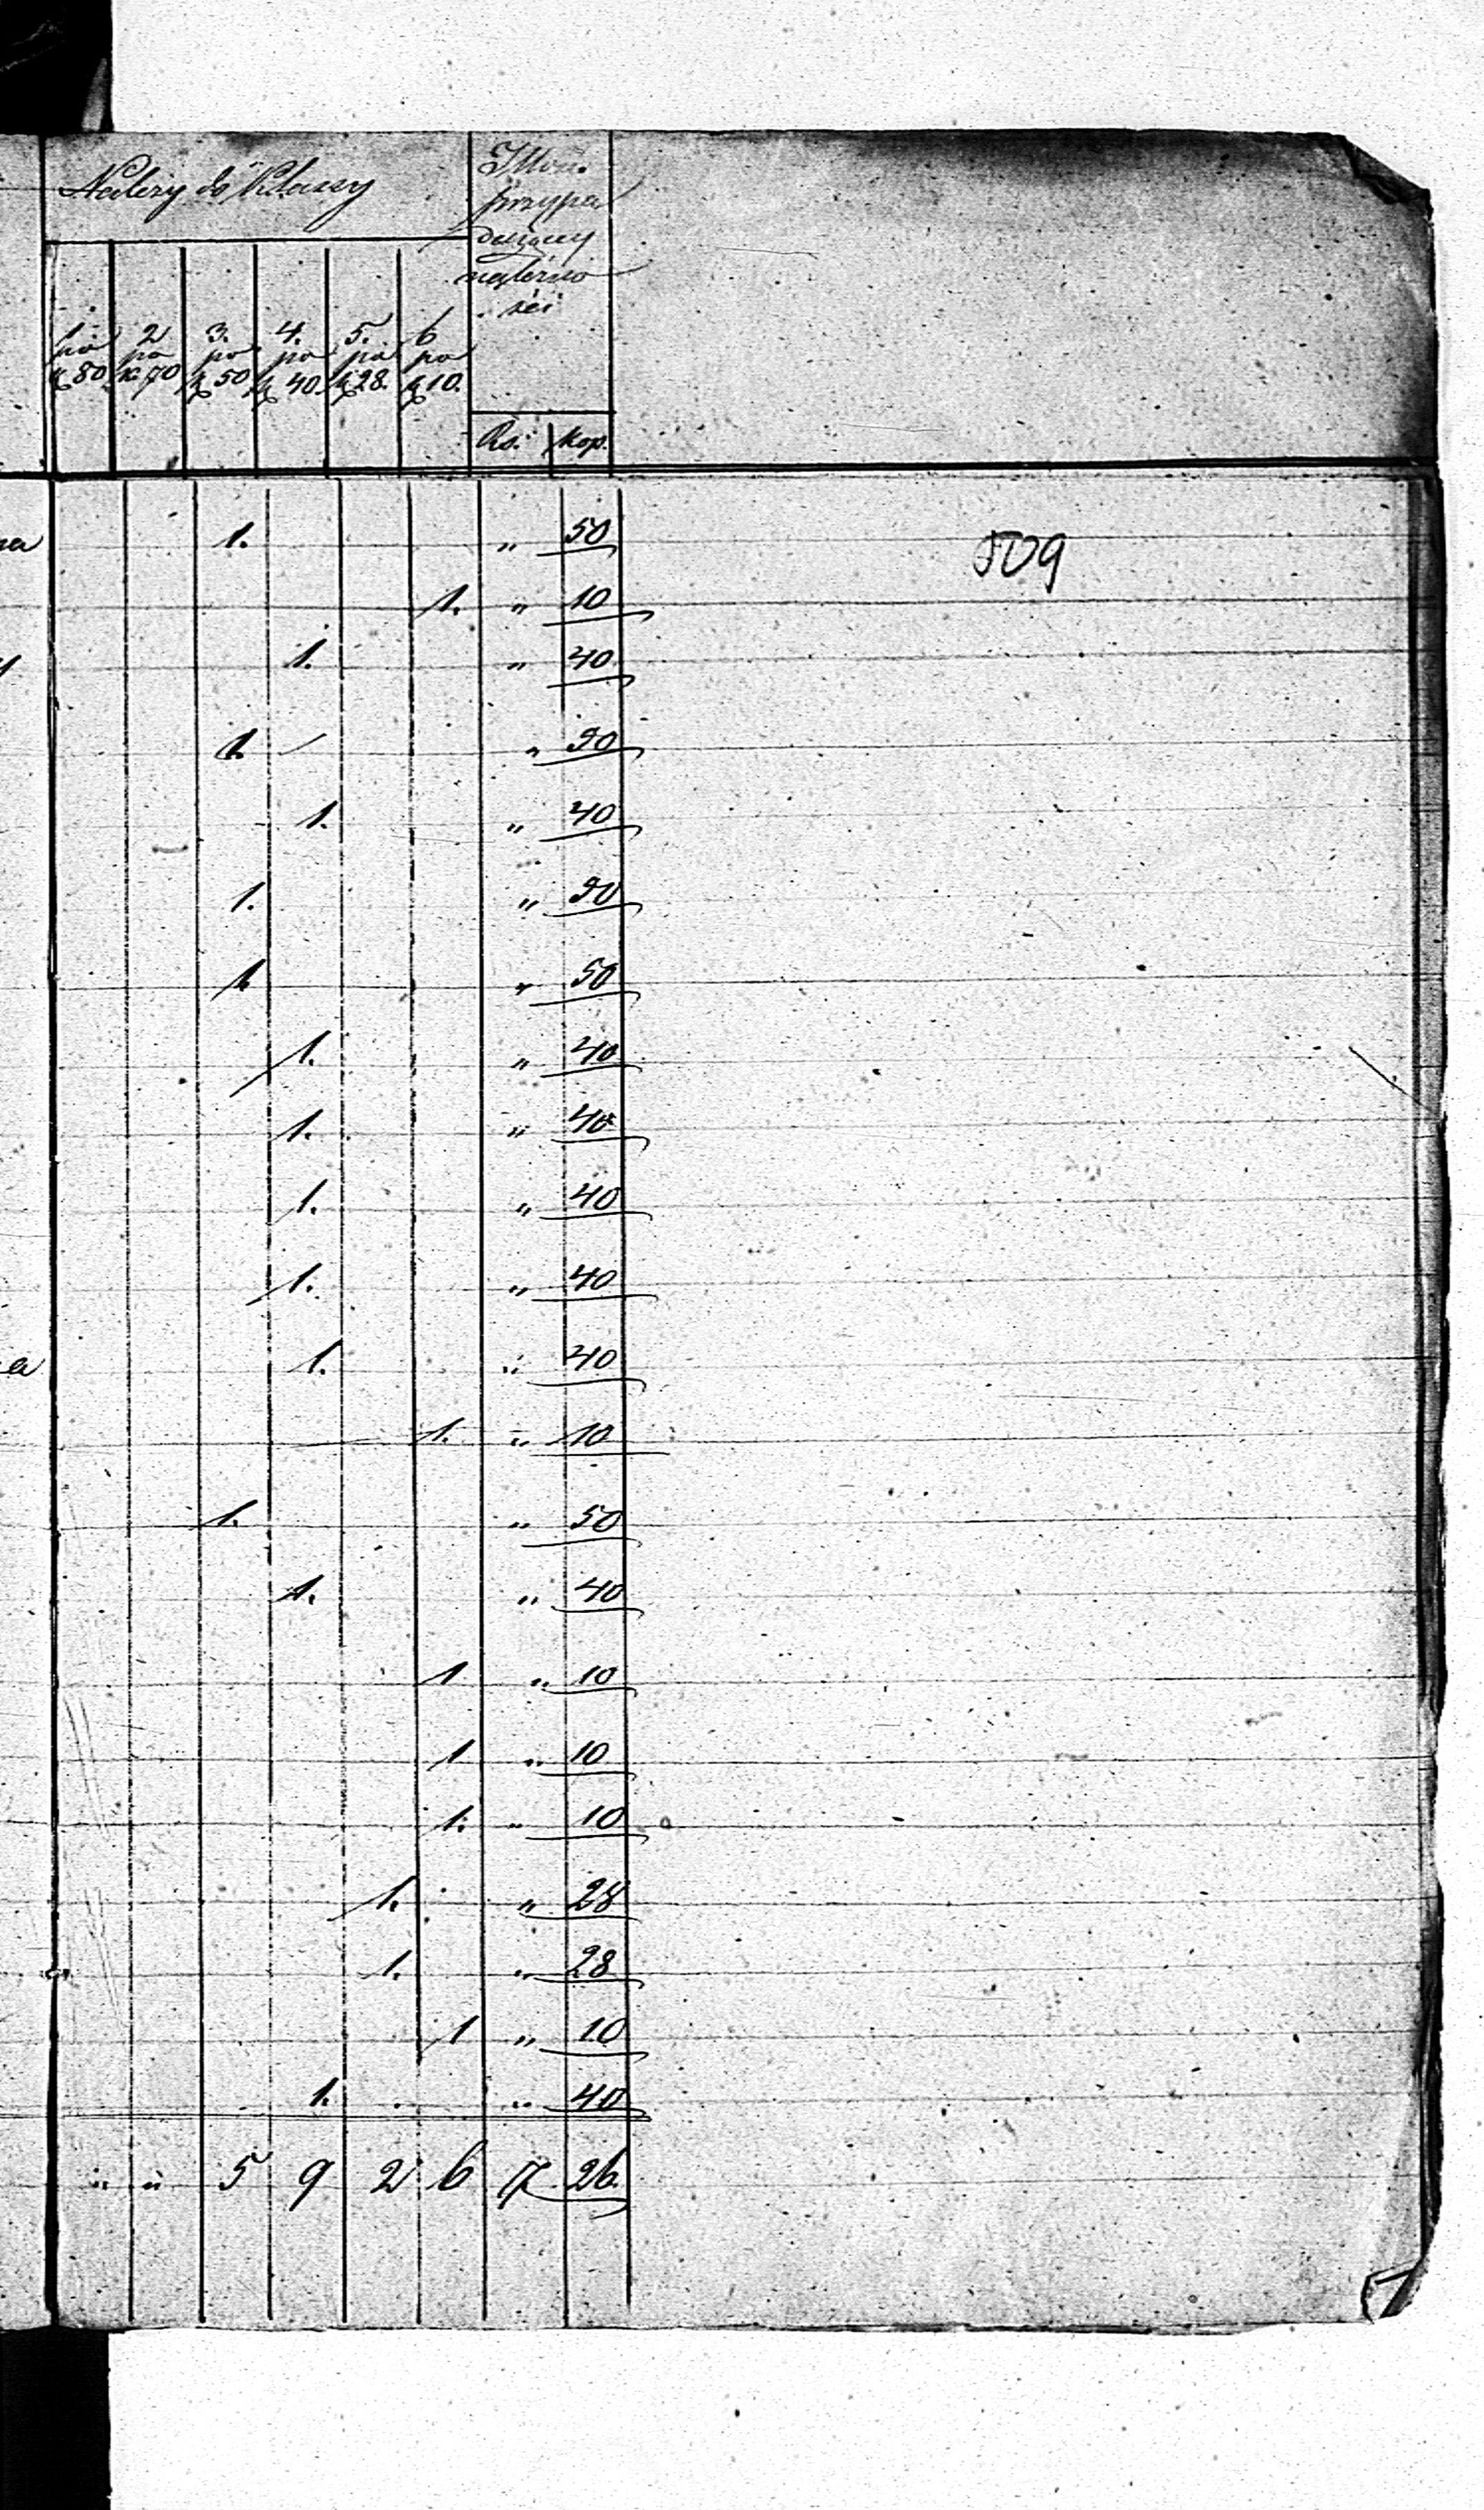 Należy do Klassy
Ilość
przypa
dającey
należno
ści
1. 2 3. 4. 5. 6
po po po po po po
k 80 k. 70 k 50 k 40. k 28. k 10.
Rs. kop.
na 1. " 50
509
1. " 10
1. " 40
1. " 50
1. " 40
1. " 50
1. " 50
1. " 40
1. " 40
1. " 40
1. " 40
a 1. " 40
1. " 10
1. " 50
1. " 40
1 " 10
1 " 10
1. " 10
1. " 28
1. " 28
1 " 10
1. " 40
" " 5 9 2 6 7 26.